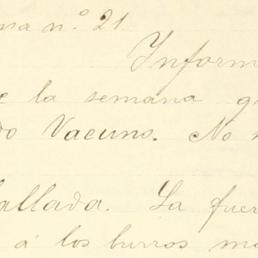 na n.º 21
Inform
e la semana q
do Vacuno. No
allada. La fuer
á los burros ma